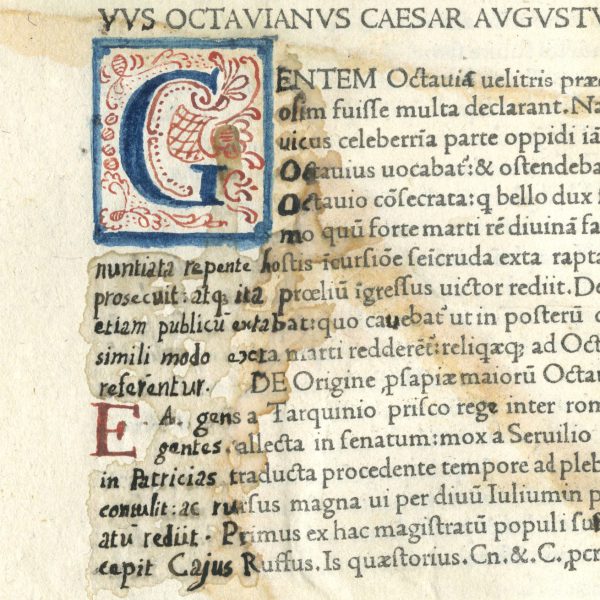 VVS OCTAVIANVS CAESAR AVGVSTV
GENTEM Octauiā uelitris præd
olim fuisse multa declarant. Na
uicus celeberrīa parte oppidi iā
Octauius uocabat᷑: & ostendeba
Octauio cōsecrata: q bello dux f
mo quū forte marti rē diuinā fa
nuntiata repente hostis īcursiōe seicruda exta rapta
prosecuit: atq; ita prœliū īgressus uictor rediit. De
etiam publicū extabat: quo cauebat᷑ ut in posterū
simili modo exta marti redderēt᷑: reliqæq; ad Oct
referentur. DE Origine ꝓsapiæ maiorū Octau
EA gens a Tarquinio prisco rege inter rom
gentes. allecta in senatum: mox a Seruilio
in Patricias traducta procedente tempore ad pleb
contulit: ac rursus magna ui per diuū Iulium in p
atū rediit. Primus ex hac magistratū populi suf
cepit Cajus Ruffus. Is quæstorius. Cn. & C, pcr